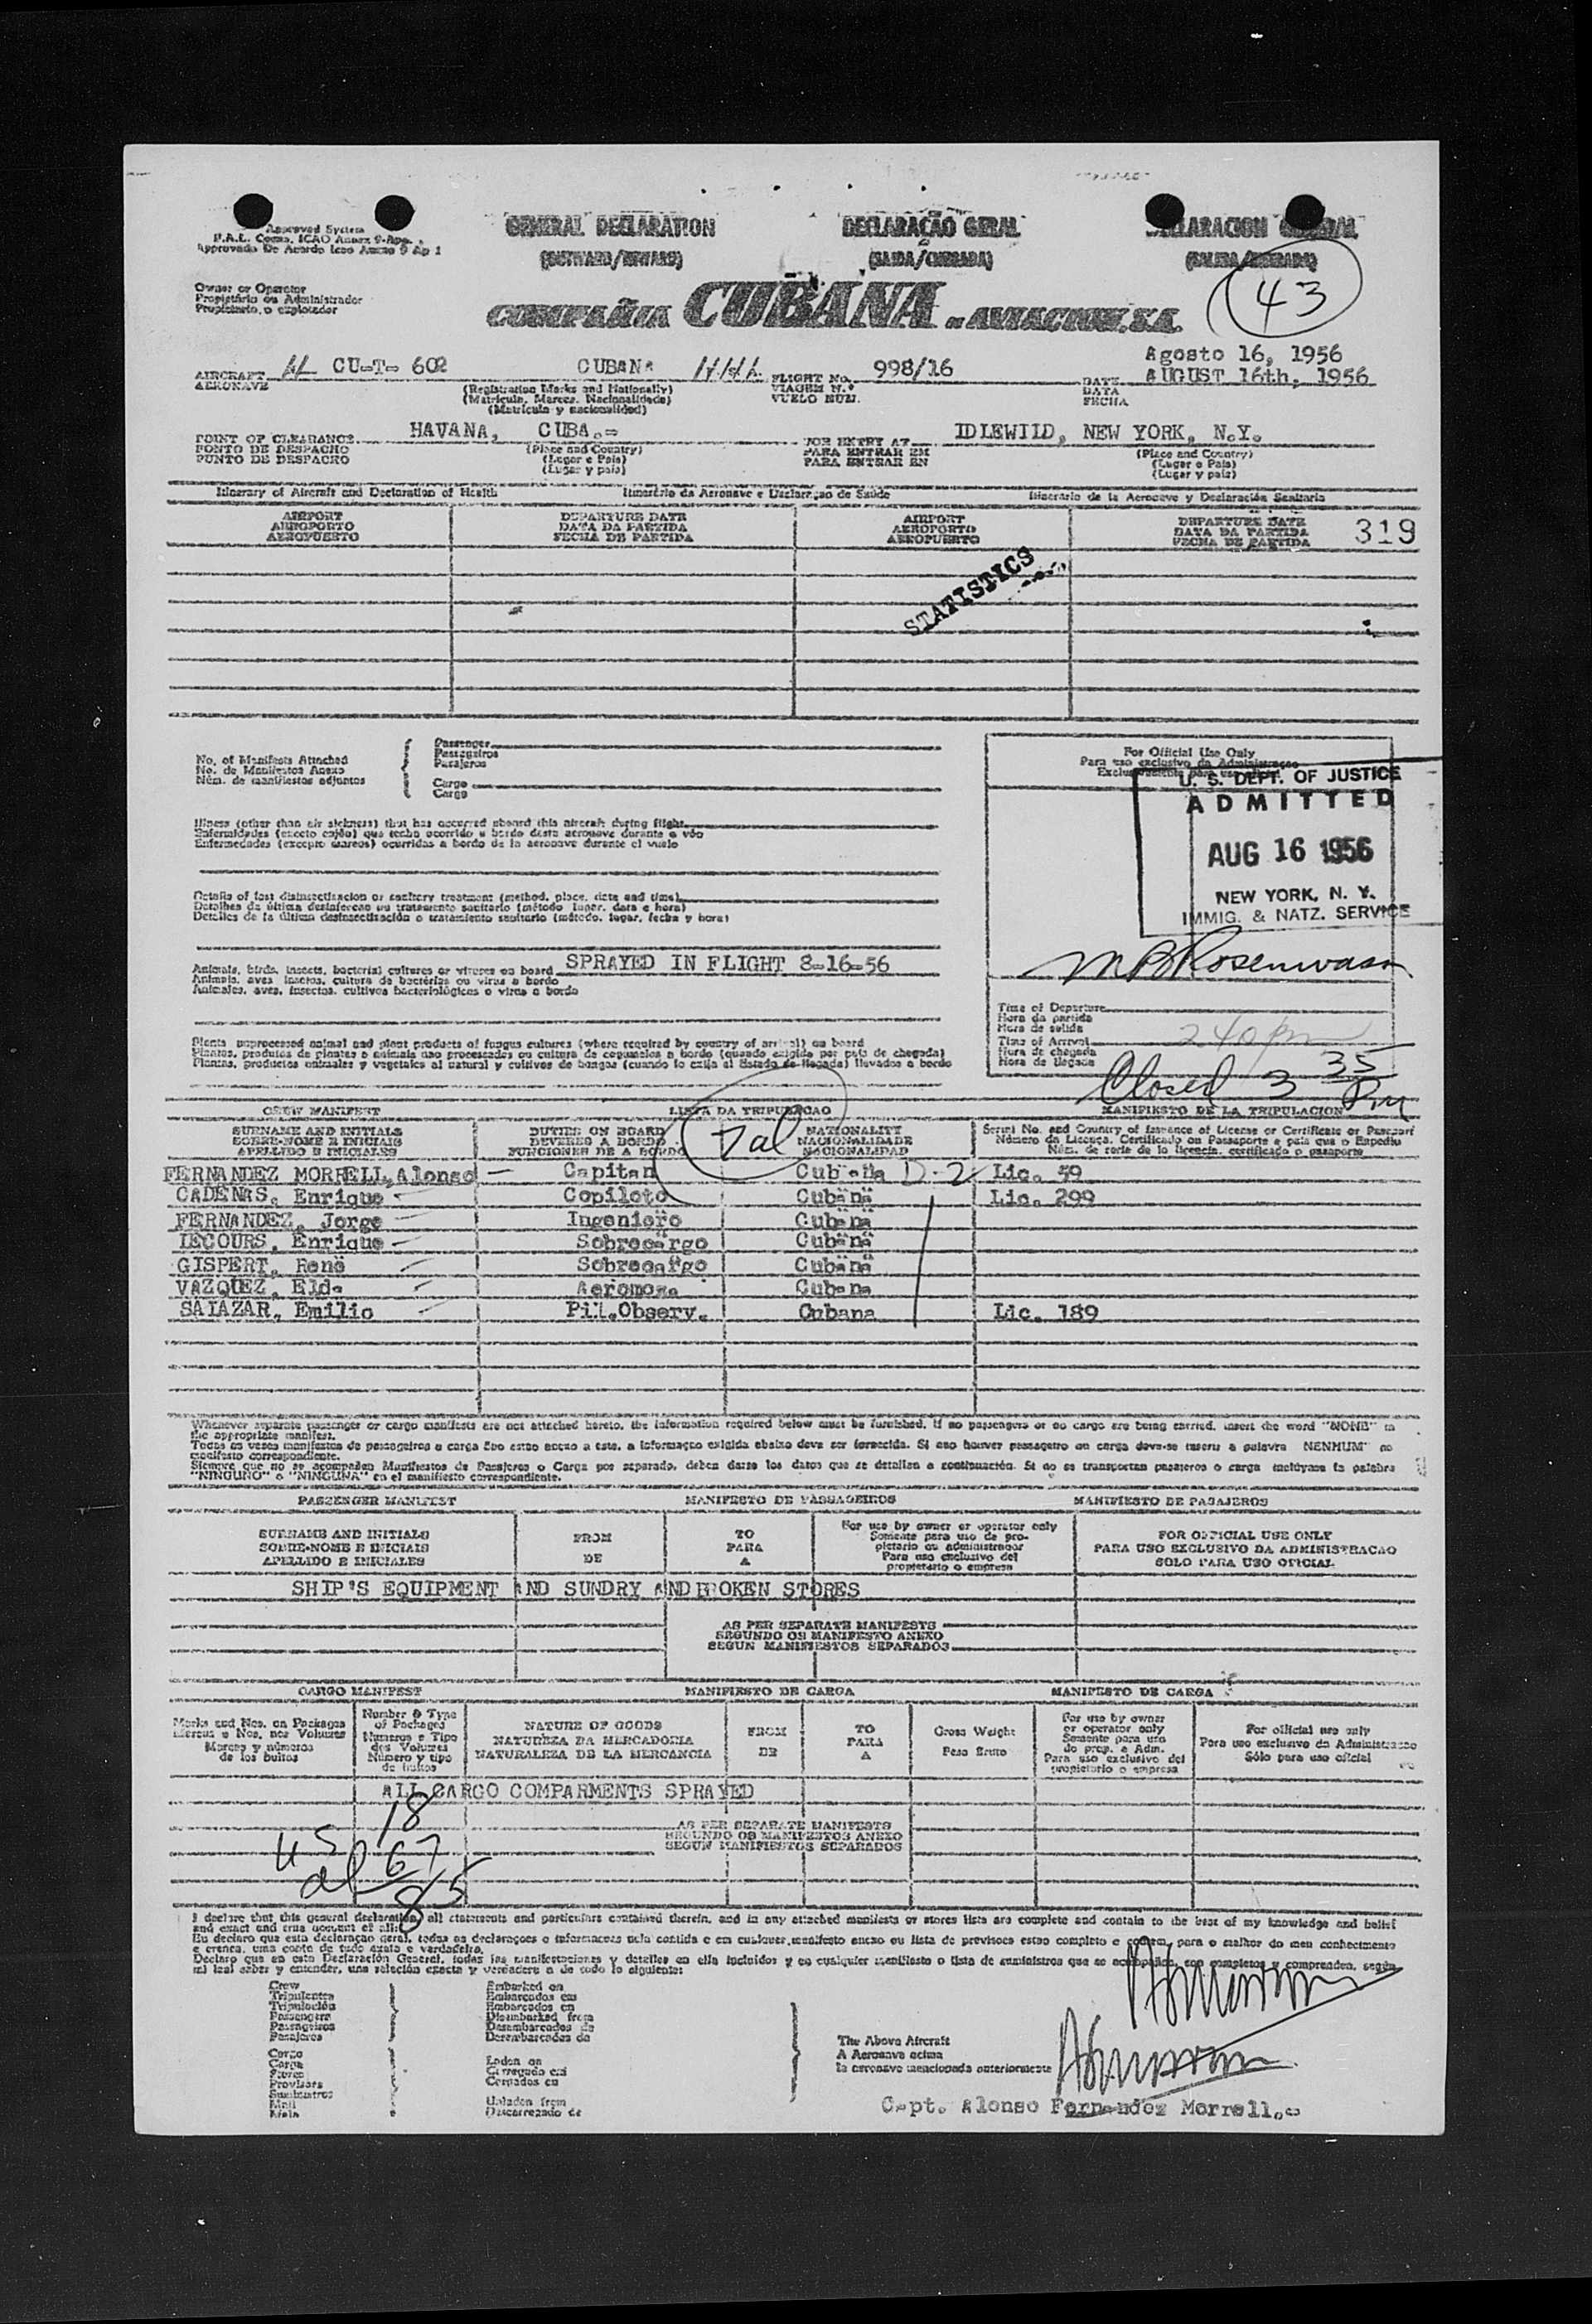 Approved System
P.A.L. Comn. ICAO Annex 9-App.
Approvado De Acordo Icao Annex 9 Ap 1
GENERAL DECLARATION
(OUTWARD/INWARD)
DECLARAÇÃO GERAL
(SAIDA/ENTRADA)
DECLARACION GENERAL
Owner or Operator
Propietário ou Administrador
Propietario, o explotador
COMPAÑIA CUBANA DE AVIACION, S.A.
43
Agosto 16, 1956
AIRCRAFT CU-T- 602 CUBANA FLIGHT No. 998/16 DATE AUGUST 16th, 1956
AERONAVE (Registration Marks and Nationality) VIAGEM N.º DATA
(Matricula, Marcas, Nacionalidade) VUELO NUM. FECHA
(Matricula y nacionalidad)
POINT OF CLEARANCE HAVANA, CUBA.= FOR ENTRY AT IDLEWILD, NEW YORK, N.Y.
PONTO DE DESPACHO (Place and Country) PARA ENTRAR EM (Place and Country)
PUNTO DE DESPACHO (Lugar e Pais) PARA ENTRAR EN (Lugar o Pais)
(Lugar y pais) (Lugar y pais)
Itinerary of Aircraft and Declaration of Health Itinerário da Aeronave e Declaração de Saúde Itinerario de la Aeronave y Declaración Sanitaria
AIRPORT DEPARTURE DATE AIRPORT DEPARTURE DATE
AEROPORTO DATA DA PARTIDA AEROPORTO DATA DA PARTIDA 319
AEROPUERTO FECHA DE PARTIDA AEROPUERTO FECHA DE PARTIDA
STATISTICS
No. of Manifests Attached
No. de Manifestos Anexo
Núm. de manifiestos adjuntos
Passenger
Passageiros
Pasajeros
Cargo
Carga
For Official Use Only
Para uso exclusivo da Administraçao
U. S. DEPT. OF JUSTICE
ADMITTED
AUG 16 1956
NEW YORK, N. Y.
IMMIG. & NATZ. SERVICE
Illness (other than air sickness) that has occurred aboard this aircraft during flight
Enfermedades (excepto mareos) ocurridas a bordo de la aeronave durante el vuelo
Details of last disinsectisacion or sanitary treatment (method, place, date and time)
Detalles de la última desinsectisación o tratamiento sanitario (método, lugar, fecha y hora)
Animals, birds, insects, bacterial cultures or viruses on board SPRAYED IN FLIGHT 8-16-56
Animals, aves insectos, cultura de bactérias ou virus a bordo
Animales, aves, insectos, cultivos bacteriológicos o virus a bordo
Time of Departure
Hora da partida
Hora de salida
Time of Arrival 240 pm
Hora da chegada
Hora de llegada
Closed 3 35 Pm
Plants unprocessed animal and plant products of fungus cultures (where required by country of arrival) on board
Plantas, productos animales y vegetales al natural y cultivos de hongos (cuando lo exija el Estado de llegada) llevados a bordo
CREW MANIFEST LISTA DA TRIPULACAO MANIFIESTO DE LA TRIPULACION
7 al
SURNAME AND INITIALS DUTIES ON BOARD NATIONALITY Serial No. and Country of Issuance of License or Certificate or Passport
SOBRE-NOME E INICIAIS DEVERES A BORDO NACIONALIDADE Número da Licença, Certificado ou Passaporte e pais que o Expediu
APELLIDO E INICIALES FUNCIONES DE A BORDO NACIONALIDAD Núm. de serie de la licencia, certificado o pasaporte
FERNANDEZ MORRELL, Alonso Capitan Cubana D-2 Lic. 49
CADENAS, Enrique Copiloto Cubana Lic. 299
FERNANDEZ, Jorge Ingeniero Cubana
LECOURS, Enrique Sobrecargo Cubana
GISPERT, René Sobrecargo Cubana
VAZQUEZ, Elda Aeromoza Cubana
SALAZAR, Emilio Pil.Observ. Cubana Lic. 189
Whenever separate passenger or cargo manifests are not attached hereto, the information required below must be furnished. If no passengers or no cargo are being carried, insert the word "NONE" in
the appropriate manifest.
Siempre que no se acompañen Manifiestos de Pasajeros o Carga por separado, deben darse los datos que se detallan a continuación. Si no se transportan pasajeros o carga inclúyase la palabra
"NINGUNO" o "NINGUNA" en el manifiesto correspondiente.
PASSENGER MANIFEST MANIFESTO DE PASSAGEIROS MANIFIESTO DE PASAJEROS
SURNAME AND INITIALS FROM TO For use by owner or operator only FOR OFFICIAL USE ONLY
SOBRE-NOME E INICIAIS PARA Somente para uso de pro- PARA USO EXCLUSIVO DA ADMINISTRACAO
APELLIDO E INICIALES DE A pietario ou administrador SOLO PARA USO OFICIAL
Para uso exclusivo del
propietario o empresa
SHIP'S EQUIPMENT AND SUNDRY AND BROKEN STORES
AS PER SEPARATE MANIFESTS
SEGUNDO OS MANIFESTO ANEXO
SEGUN MANIFIESTOS SEPARADOS
CARGO MANIFEST MANIFIESTO DE CARGA MANIFIESTO DE CARGA
Marks and Nos. on Packages
Marcas e Nos. nos Volumes
Marcas y números
de los bultos
Number & Type
of Packages
Numeros e Tipo
dos Volumes
Número y tipo
de bultos
NATURE OF GOODS
NATUREZA DA MERCADORIA
NATURALEZA DE LA MERCANCIA
FROM
DE
TO
PARA
A
Gross Weight
Peso Bruto
For use by owner
or operator only
Somente para uso
do prop. e Adm.
Para uso exclusivo del
propietario o empresa
For official use only
Para uso exclusivo da Administracao
Sólo para uso oficial
ALL CARGO COMPARMENTS SPRAYED
AS PER SEPARATE MANIFESTS
SEGUNDO OS MANIFESTOS ANEXO
SEGUN MANIFIESTOS SEPARADOS
US 18
al 67
85
I declare that this general declaration, all statements and particulars contained therein, and in any attached manifests or stores lists are complete and contain to the best of my knowledge and belief
and exact and true account of all:
Declaro que en esta Declaración General, todas las manifestaciones y detalles en ella incluidos y en cualquier manifiesto o lista de suministros que se acompañan, son completos y comprenden, según
mi leal saber y entender, una relación exacta y verdadera a de todo lo siguiente:
Crew
Tripulantes
Tripulación
Passengers
Passageiros
Pasajeros
Cargo
Carga
Stores
Suministros
Mail
Mala
Embarked on
Embarcados em
Embarcados en
Disembarked from
Desembarcados de
Desembarcados de
Laden on
Carregado em
Cargados en
Unladen from
Descarregado de
The Above Aircraft
A Aeronave acima
la aeronave mencionada anteriormente
Capt. Alonso Fernandez Morrell.=